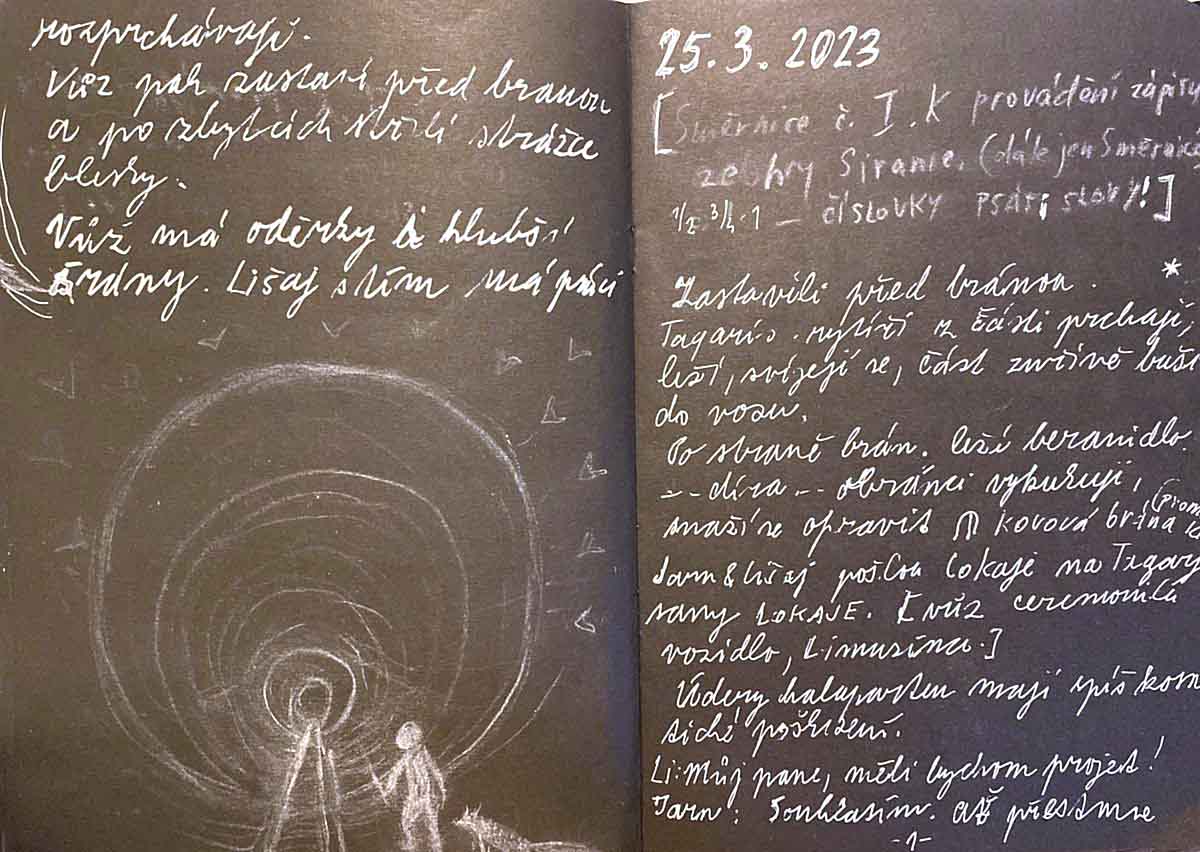 rozprchávají.
Vůz pak zastaví před branou
a po zbytcích střílí strážce
blesky.
Vůz má oděrky & hlubší
rány. Lišaj s tím má práci
25.3.2023
[Směrnice č. I. K provádění zápisu
ze hry Siranie. (dále jen Směrnice
1/2 3/4 1 – číslovky psáti slovy!]
*
Zastavili před bránou.
rytíři z části prchají,
leží, svíjejí se, část zuřivě buší
do vozu.
Po straně brán. leží beranidlo.
-- díra -- obránci vykukují,
snaží se opravit kovová brána
Jarn & Lišaj pošlou lokaje na
rany LOKAJE. [vůz ceremoniál
vozidlo, Limusína.]
Údery halaparten mají spíš kosm
tické poškození.
Li: Můj pane, měli bychom projet!
Jarn: Souhlasím. Ať přestanue
-1-